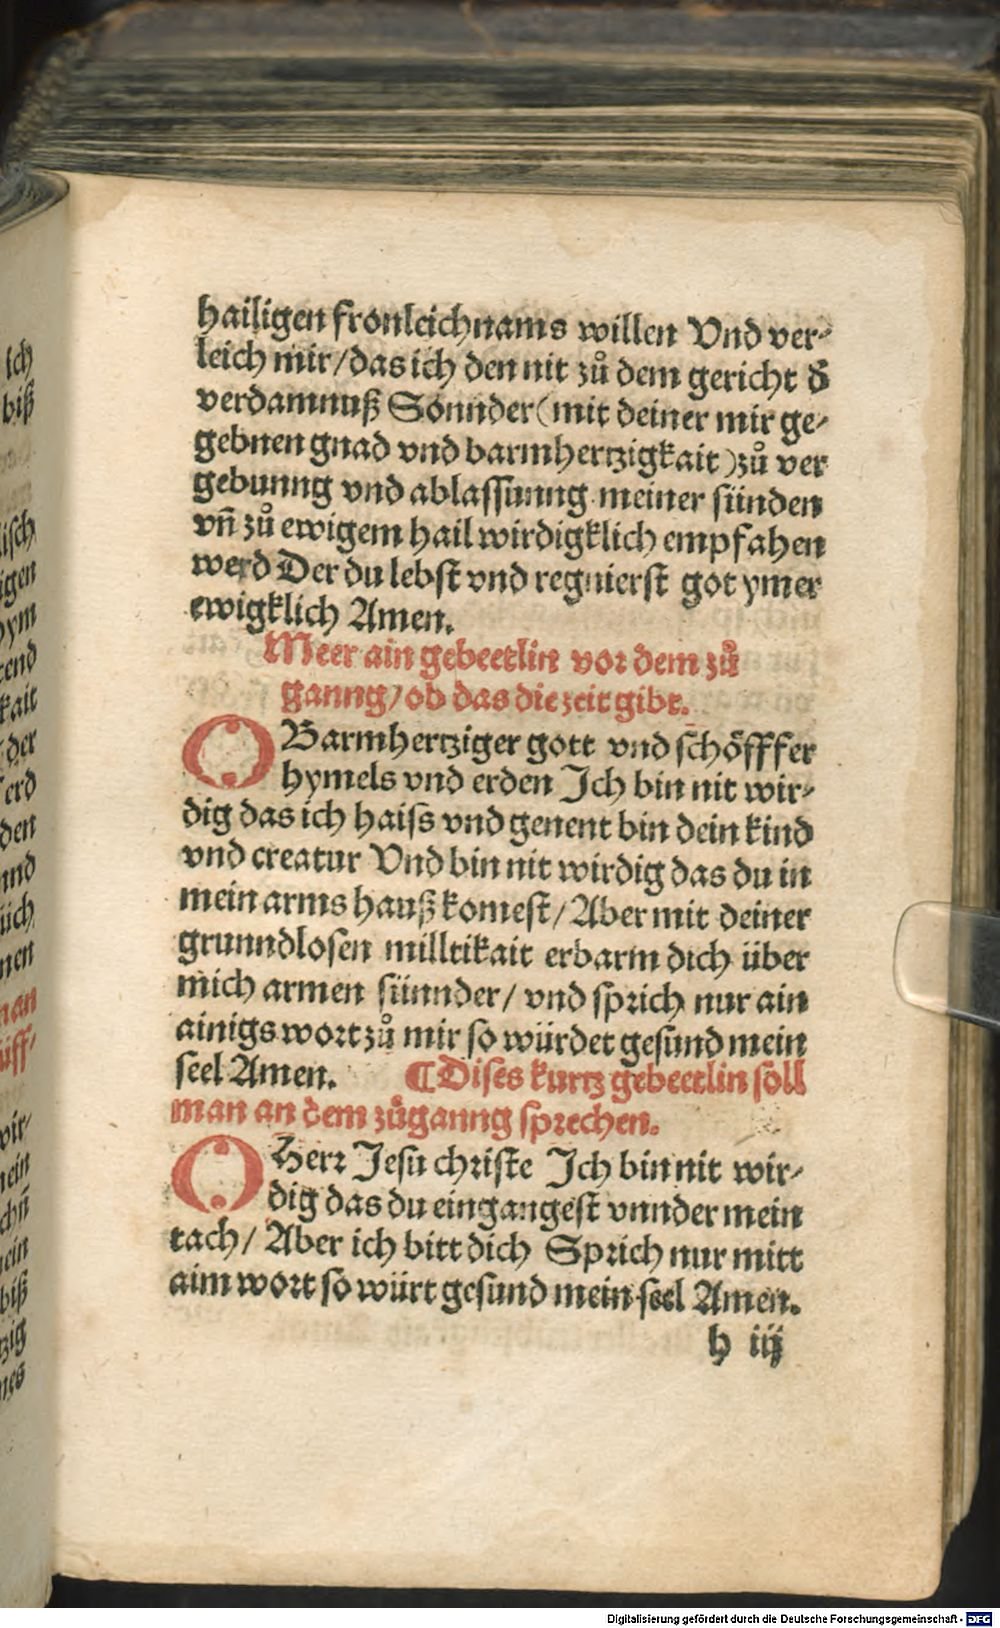 hailigen fronleichnams willen Vnd ver⸗
leich mir/das ich den nit zuͦ dem gericht d̕
verdamnuß Sonnder(mit deiner mir ge⸗
gebnen gnad vnd barmhertzigkait)zuͦ ver
gebunng vnd ablassunng meiner sünden
vñ zuͦ ewigem hail wirdigklich empfahen
werd Der du lebst vnd regnierst got ymer
ewigklich Amen.
Meer ain gebeetlin vor dem zuͦ
ganng/ob das die zeit gibt.
O Barmhertziger gott vnd schöfffer
hymels vnd erden Ich bin nit wir⸗
dig das ich haiss vnd genent bin dein kind
vnd creatur Vnd bin nit wirdig das du in
mein arms hauß komest/Aber mit deiner
grunndlosen milltikait erbarm dich über
mich armen sünnder/ vnd sprich nur ain
ainigs wort zuͦ mir so würdet gesund mein
seel Amen. ¶Dises kurtz gebeetlin soll
man an dem zuͦganng sprechen.
O Herr Jesu christe Ich bin nit wir⸗
dig das du eingangest vnnder mein
tach/ Aber ich bitt dich Sprich nur mitt
aim wort so würt gesund mein seel Amen.
h iij
ich
biß
isch
igen
ym
kait
der
erd
den
nnd
üch
nen
man
üff⸗
wir⸗
mein
chñ
mein
biß
tzig
mes
Digitalisierung gefördert durch die Deutsche Forschungsgemeinschaft - DFG